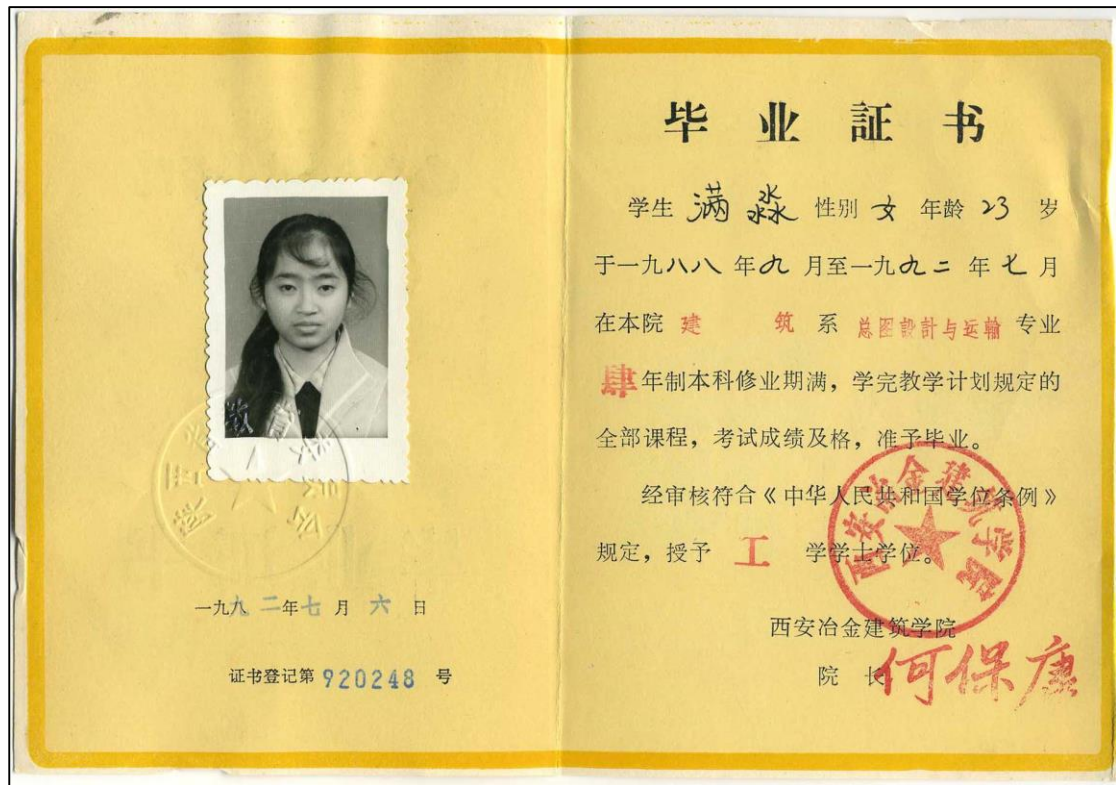 一九九二年七月六日
证书登记第920248号
毕业証书
学生 满淼 性别 女 年龄 23 岁
于一九八八年九月至一九九二年七月
在本院 建筑系 总图設計与运输 专业
肆年制本科修业期满，学完教学计划规定的
全部课程，考试成绩及格，准予毕业。
经审核符合《中华人民共和国学位条例》
规定，授予 工 学学士学位。
西安冶金建筑学院
西安冶金建筑学院
院长 何保康